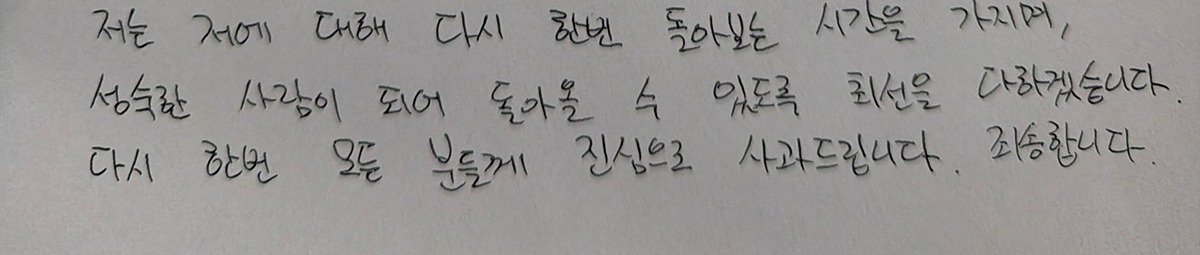 저는 저에 대해 다시 한번 돌아보는 시간을 가지며,
성숙한 사람이 되어 돌아올 수 있도록 최선을 다하겠습니다.
다시 한번 모든 분들께 진심으로 사과드립니다. 죄송합니다.